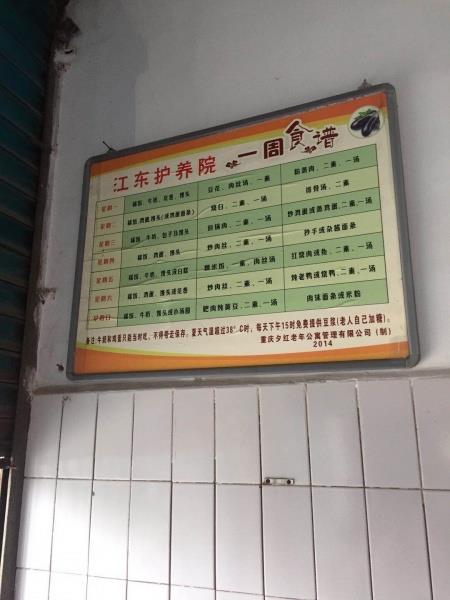 江东护养院 一周食谱
星期一 稀饭、牛奶、花卷、馒头 豆花、肉丝汤、一素 粉蒸肉、二素、一汤
星期二 稀饭、鸡蛋、馒头(或鸡蛋面条) 烧白、二素、一汤 排骨汤、二素
星期三 稀饭、牛奶、包子及馒头 回锅肉、二素、一汤 炒鸡蛋或蒸鸡蛋、二素、一汤
星期四 稀饭、鸡蛋、馒头 炒肉丝、二素、一汤 抄手或杂酱面条
星期五 稀饭、牛奶、馒头 糯米饭、一素、肉丝汤 红烧肉或鱼、二素、一汤
星期六 稀饭、鸡蛋、馒头或花卷 炒肉丝、二素、一汤 炖老鸭或烧鸭、二素、一汤
星期日 稀饭、牛奶、馒头或小汤圆 肥肉炖黄豆、二素、一汤 肉沫面条或米粉
备注:牛奶和鸡蛋只能当时吃、不得带去保存。夏天气温超过38°C时、每天下午15时免费提供豆浆(老人自己加糖)。
重庆夕红老年公寓管理有限公司(制)
2014